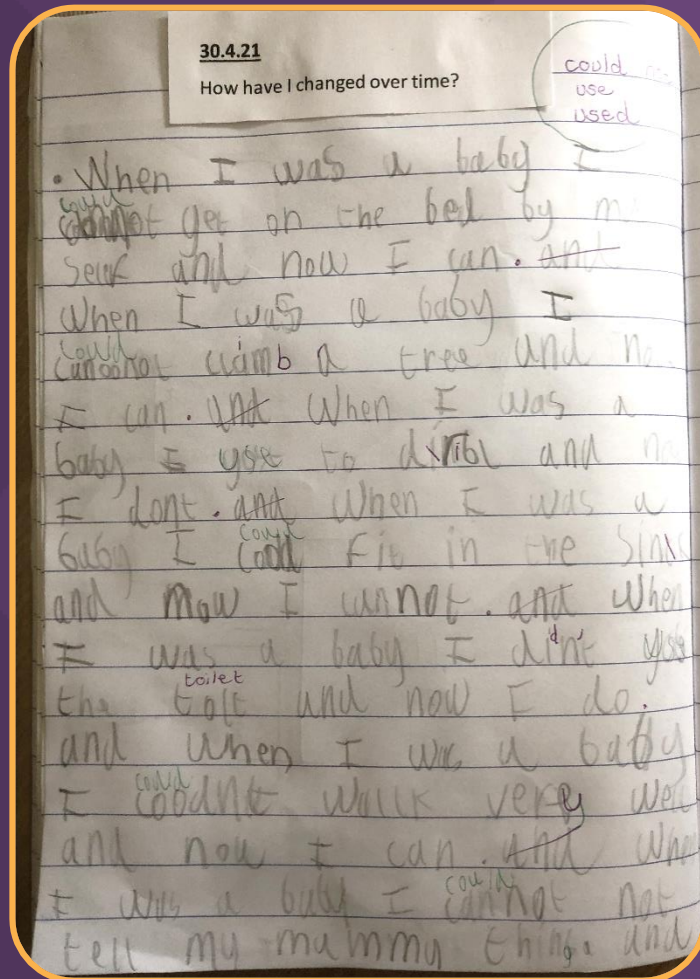 30.4.21
How have I changed over time?
could
use
used
• When I was a baby I
could
not get on the bed by m
self and now I can. ant
When I was a baby I
could
cannot climb a tree and no
I can. and When I was a
baby I yose to and
I dont. and When I was a
could
baby I cood Fit in the Sink
and now I cannot. and When
I was a baby I didn't yose
toilet
the tolt and now I do.
and When I was a baby
could
I coodnt walk very well
and now I can. And Whe
could
I was a baby I cannot not
tell my mummy things and